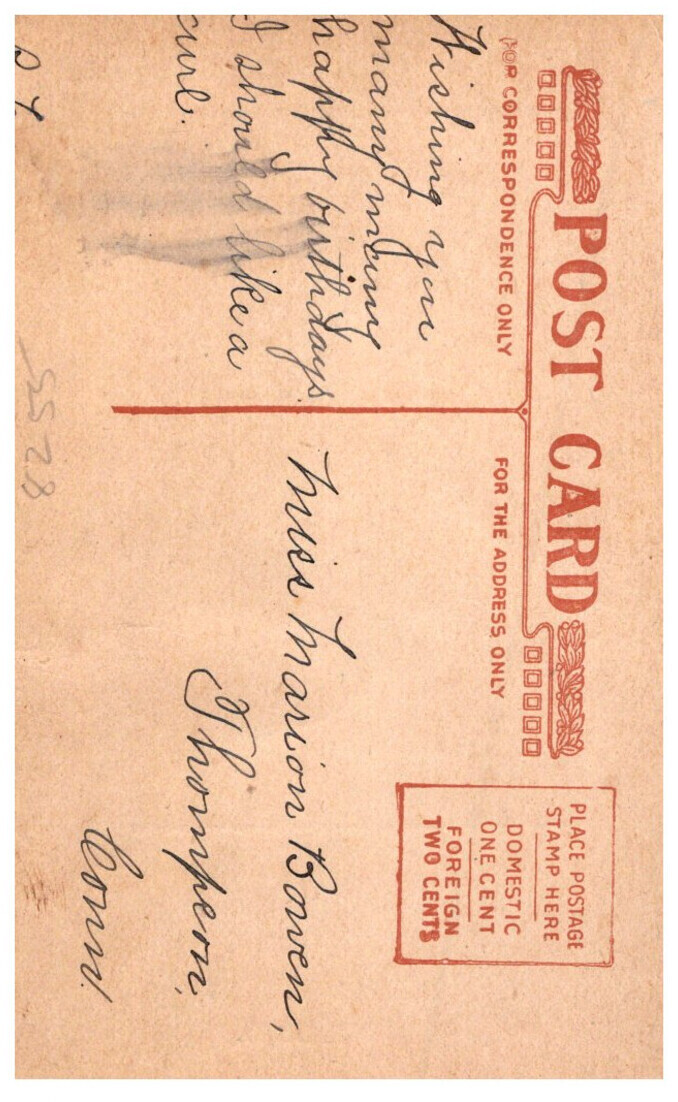 POST CARD
FOR CORRESPONDENCE ONLY
FOR THE ADDRESS ONLY
PLACE POSTAGE
STAMP HERE
DOMESTIC
ONE CENT
FOREIGN
TWO CENTS
Wishing you
many many
happy birthdays
I should like a
curl.
Miss Marion Bowen,
Thompson,
Conn.
5528